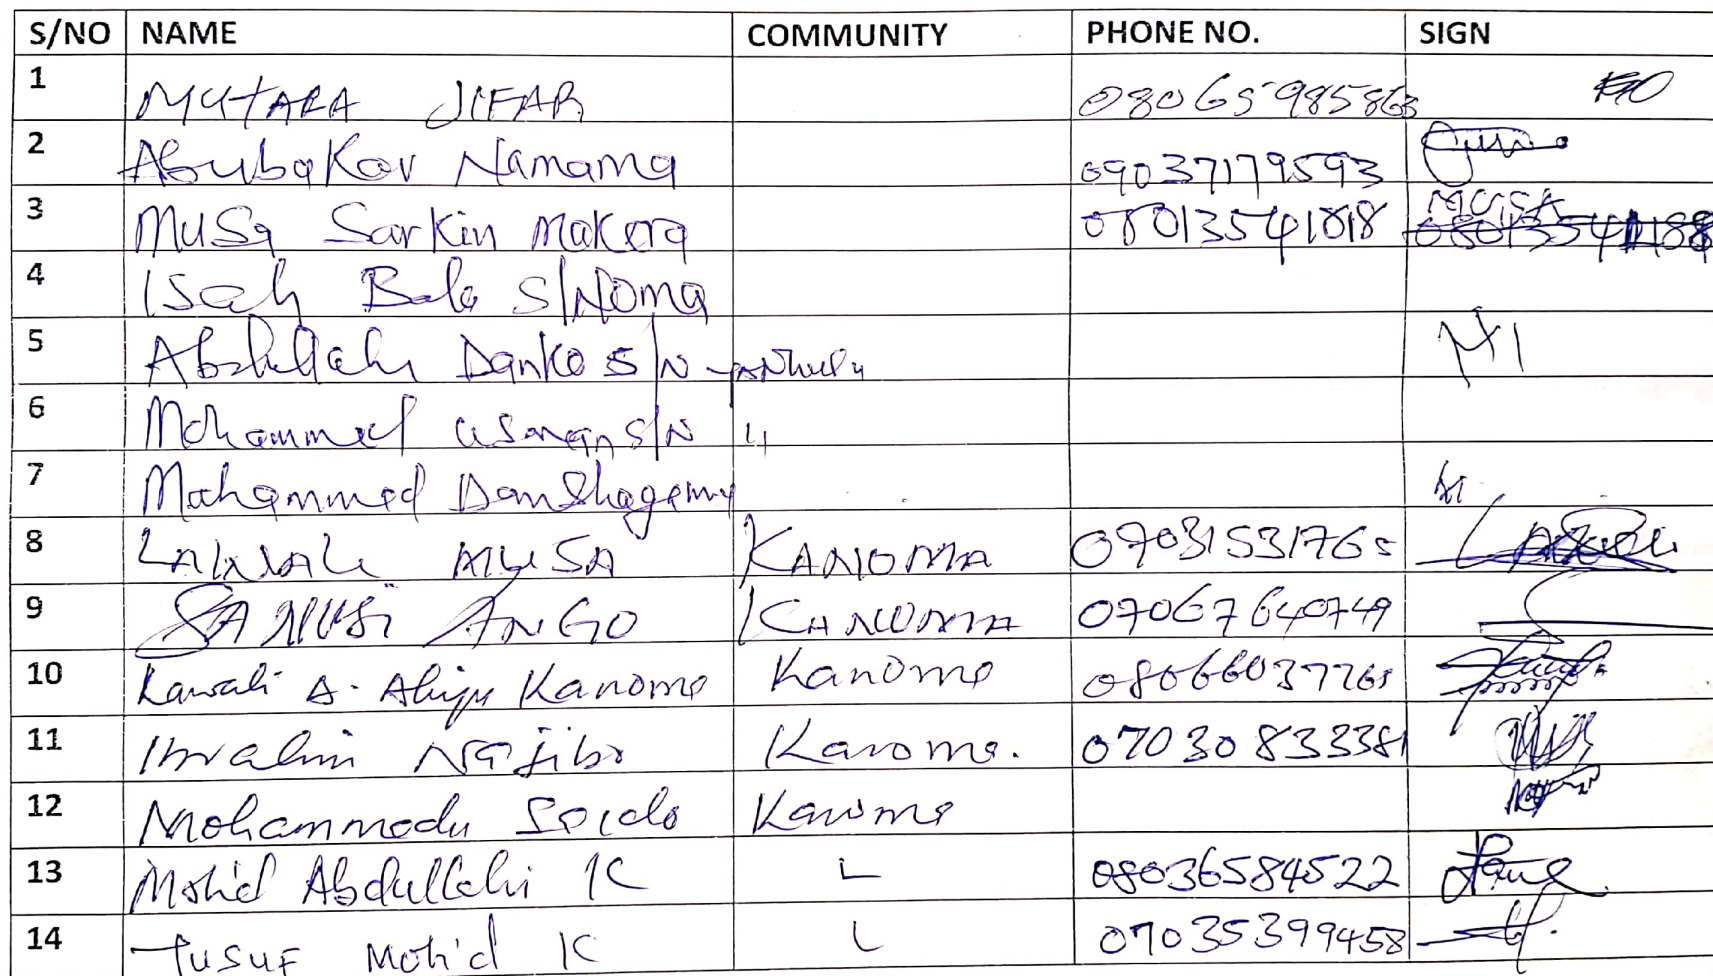 S/NO NAME COMMUNITY PHONE NO. SIGN
1 MUTARA JIFAR 08065985863
2 Abubakar Namama 09037179593
3 Musa Sarkin Makera 08013541818 MUSA 08013541188
4 Isah Bala S/Noma
5 Abdullahi Danko S/N
6 Mohammed Usman S/N 4
7 Mohammed Danshagamu
8 LAWALI MUSA KANOMA 07031531765
9 SANUSI ANGO KANOMA 07067640749
10 Lawali A. Aliyu Kanoma Kanoma 08066037761
11 Ibrahim Najibo Kanoma. 07030833381
12 Mohammadu Saidu Kanoma
13 Moh'd Abdullahi K L 08036584522
14 Yusuf Moh'd K L 07035399458